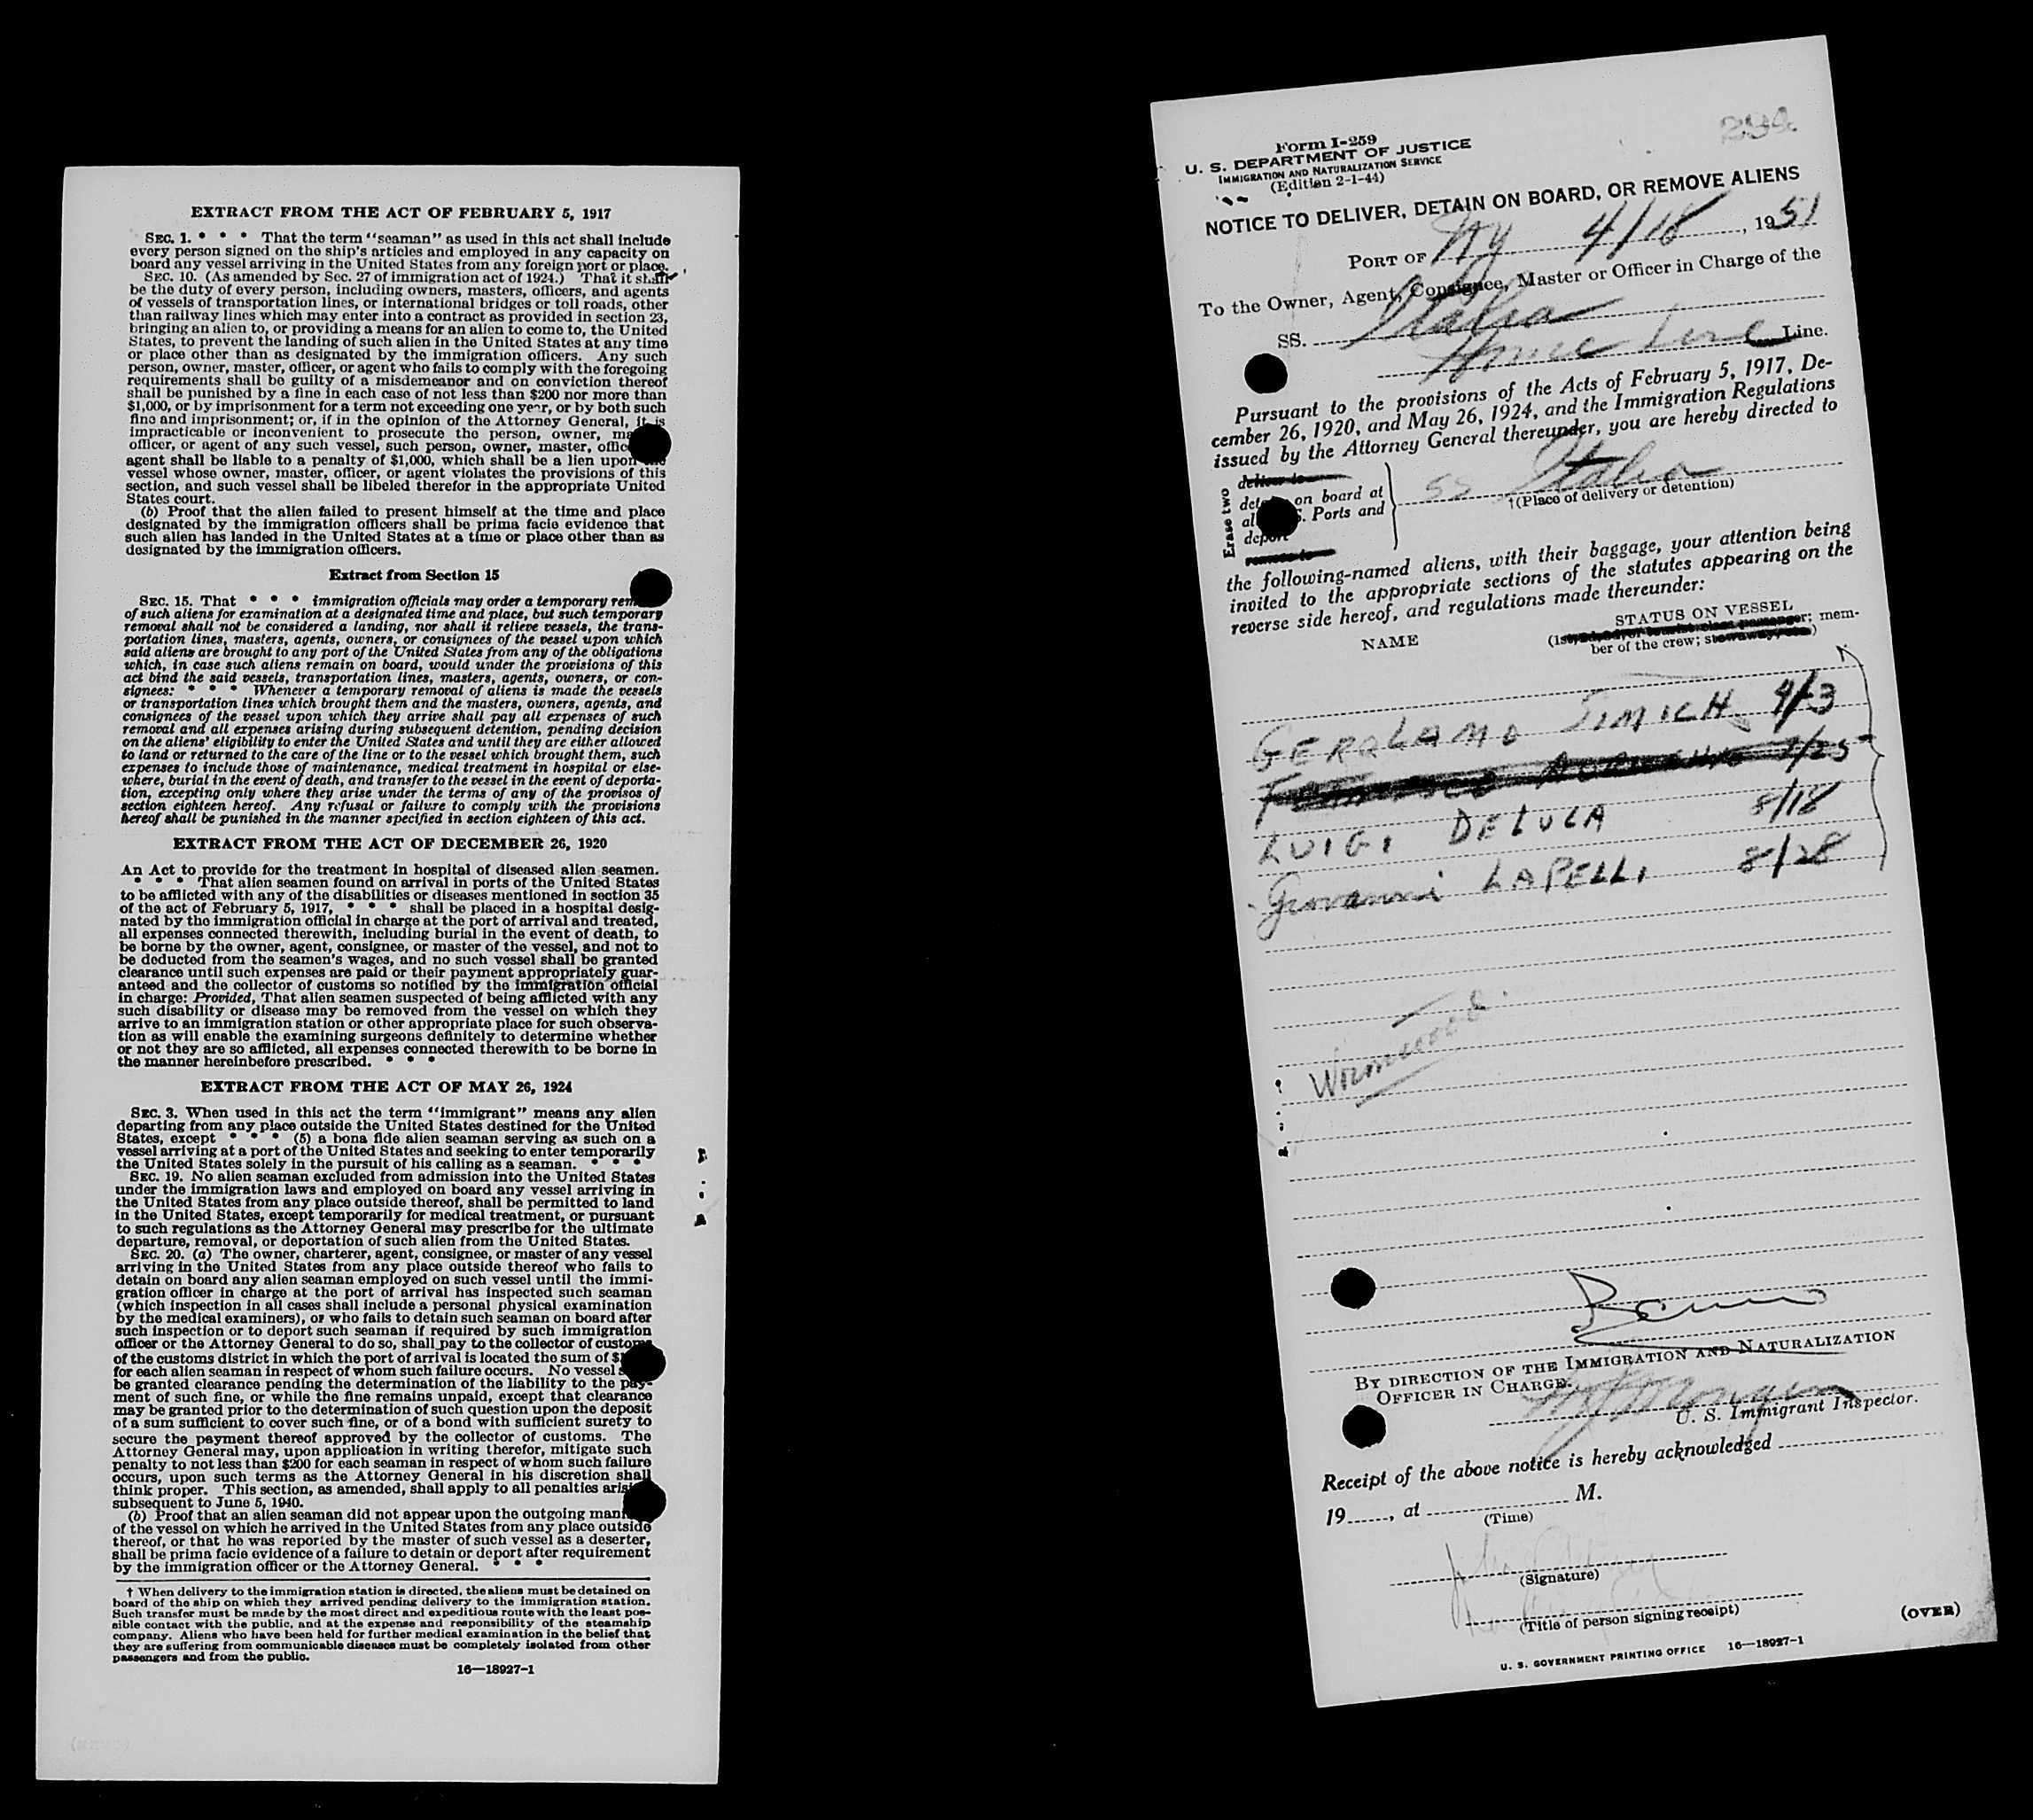 EXTRACT FROM THE ACT OF FEBRUARY 5, 1917
SEC. 1. * * * That the term "seaman" as used in this act shall include
every person signed on the ship's articles and employed in any capacity on
board any vessel arriving in the United States from any foreign port or place.
SEC. 10. (As amended by Sec. 27 of immigration act of 1924.) That it shall
be the duty of every person, including owners, masters, officers, and agents
of vessels of transportation lines, or international bridges or toll roads, other
than railway lines which may enter into a contract as provided in section 23,
bringing an alien to, or providing a means for an alien to come to, the United
States, to prevent the landing of such alien in the United States at any time
or place other than as designated by the immigration officers. Any such
person, owner, master, officer, or agent who fails to comply with the foregoing
requirements shall be guilty of a misdemeanor and on conviction thereof
shall be punished by a fine in each case of not less than $200 nor more than
$1,000, or by imprisonment for a term not exceeding one year, or by both such
fine and imprisonment; or, if in the opinion of the Attorney General, it is
impracticable or inconvenient to prosecute the person, owner, ma
officer, or agent of any such vessel, such person, owner, master, offic
agent shall be liable to a penalty of $1,000, which shall be a lien upon the
vessel whose owner, master, officer, or agent violates the provisions of this
section, and such vessel shall be libeled therefor in the appropriate United
States court.
(b) Proof that the alien failed to present himself at the time and place
designated by the immigration officers shall be prima facie evidence that
such alien has landed in the United States at a time or place other than as
designated by the immigration officers.
Extract from Section 15
SEC. 15. That * * * immigration officials may order a temporary rem
of such aliens for examination at a designated time and place, but such temporary
removal shall not be considered a landing, nor shall it relieve vessels, the trans-
portation lines, masters, agents, owners, or consignees of the vessel upon which
said aliens are brought to any port of the United States from any of the obligations
which, in case such aliens remain on board, would under the provisions of this
act bind the said vessels, transportation lines, masters, agents, owners, or con-
signees: * * * Whenever a temporary removal of aliens is made the vessels
or transportation lines which brought them and the masters, owners, agents, and
consignees of the vessel upon which they arrive shall pay all expenses of such
removal and all expenses arising during subsequent detention, pending decision
on the aliens' eligibility to enter the United States and until they are either allowed
to land or returned to the care of the line or to the vessel which brought them, such
expenses to include those of maintenance, medical treatment in hospital or else-
where, burial in the event of death, and transfer to the vessel in the event of deporta-
tion, excepting only where they arise under the terms of any of the provisos of
section eighteen hereof. Any refusal or failure to comply with the provisions
hereof shall be punished in the manner specified in section eighteen of this act.
EXTRACT FROM THE ACT OF DECEMBER 26, 1920
An Act to provide for the treatment in hospital of diseased alien seamen.
* * * That alien seamen found on arrival in ports of the United States
to be afflicted with any of the disabilities or diseases mentioned in section 35
of the act of February 5, 1917, * * * shall be placed in a hospital desig-
nated by the immigration official in charge at the port of arrival and treated,
all expenses connected therewith, including burial in the event of death, to
be borne by the owner, agent, consignee, or master of the vessel, and not to
be deducted from the seamen's wages, and no such vessel shall be granted
clearance until such expenses are paid or their payment appropriately guar-
anteed and the collector of customs so notified by the immigration official
in charge: Provided, That alien seamen suspected of being afflicted with any
such disability or disease may be removed from the vessel on which they
arrive to an immigration station or other appropriate place for such observa-
tion as will enable the examining surgeons definitely to determine whether
or not they are so afflicted, all expenses connected therewith to be borne in
the manner hereinbefore prescribed. * * *
EXTRACT FROM THE ACT OF MAY 26, 1924
SEC. 3. When used in this act the term "immigrant" means any alien
departing from any place outside the United States destined for the United
States, except * * * (5) a bona fide alien seaman serving as such on a
vessel arriving at a port of the United States and seeking to enter temporarily
the United States solely in the pursuit of his calling as a seaman. * * *
SEC. 19. No alien seaman excluded from admission into the United States
under the immigration laws and employed on board any vessel arriving in
the United States from any place outside thereof, shall be permitted to land
in the United States, except temporarily for medical treatment, or pursuant
to such regulations as the Attorney General may prescribe for the ultimate
departure, removal, or deportation of such alien from the United States.
SEC. 20. (a) The owner, charterer, agent, consignee, or master of any vessel
arriving in the United States from any place outside thereof who fails to
detain on board any alien seaman employed on such vessel until the immi-
gration officer in charge at the port of arrival has inspected such seaman
(which inspection in all cases shall include a personal physical examination
by the medical examiners), or who fails to detain such seaman on board after
such inspection or to deport such seaman if required by such immigration
officer or the Attorney General to do so, shall pay to the collector of customs
of the customs district in which the port of arrival is located the sum of $1
for each alien seaman in respect of whom such failure occurs. No vessel s
be granted clearance pending the determination of the liability to the pay-
ment of such fine, or while the fine remains unpaid, except that clearance
may be granted prior to the determination of such question upon the deposit
of a sum sufficient to cover such fine, or of a bond with sufficient surety to
secure the payment thereof approved by the collector of customs. The
Attorney General may, upon application in writing therefor, mitigate such
penalty to not less than $200 for each seaman in respect of whom such failure
occurs, upon such terms as the Attorney General in his discretion shall
think proper. This section, as amended, shall apply to all penalties arisi
subsequent to June 5, 1940.
(b) Proof that an alien seaman did not appear upon the outgoing mani
of the vessel on which he arrived in the United States from any place outside
thereof, or that he was reported by the master of such vessel as a deserter,
shall be prima facie evidence of a failure to detain or deport after requirement
by the immigration officer or the Attorney General. * * *
† When delivery to the immigration station is directed, the aliens must be detained on
board of the ship on which they arrived pending delivery to the immigration station.
Such transfer must be made by the most direct and expeditious route with the least pos-
sible contact with the public, and at the expense and responsibility of the steamship
company. Aliens who have been held for further medical examination in the belief that
they are suffering from communicable diseases must be completely isolated from other
passengers and from the public.
16—18927-1
Form I-259
U. S. DEPARTMENT OF JUSTICE
IMMIGRATION AND NATURALIZATION SERVICE
(Edition 2-1-44)
NOTICE TO DELIVER, DETAIN ON BOARD, OR REMOVE ALIENS
PORT OF NY 4/18, 1951
To the Owner, Agent, Consignee, Master or Officer in Charge of the
SS. Italia
Home Line Line.
Pursuant to the provisions of the Acts of February 5, 1917, De-
cember 26, 1920, and May 26, 1924, and the Immigration Regulations
issued by the Attorney General thereunder, you are hereby directed to
Erase two
deliver to
detain on board at
all U.S. Ports and
deport
remove to
SS Italia
†(Place of delivery or detention)
the following-named aliens, with their baggage, your attention being
invited to the appropriate sections of the statutes appearing on the
reverse side hereof, and regulations made thereunder:
NAME
STATUS ON VESSEL
(1st, 2d, or tourist class passenger; mem-
ber of the crew; stowaway, etc.)
GEROLAMO SIMICH 4/3
7/25
LUIGI DELUCA 8/18
Giovanni LAPELLI 8/28
BY DIRECTION OF THE IMMIGRATION AND NATURALIZATION
OFFICER IN CHARGE.
U. S. Immigrant Inspector.
Receipt of the above notice is hereby acknowledged
19......, at M.
(Time)
(Signature)
(Title of person signing receipt)
(OVER)
U. S. GOVERNMENT PRINTING OFFICE 16—18927-1